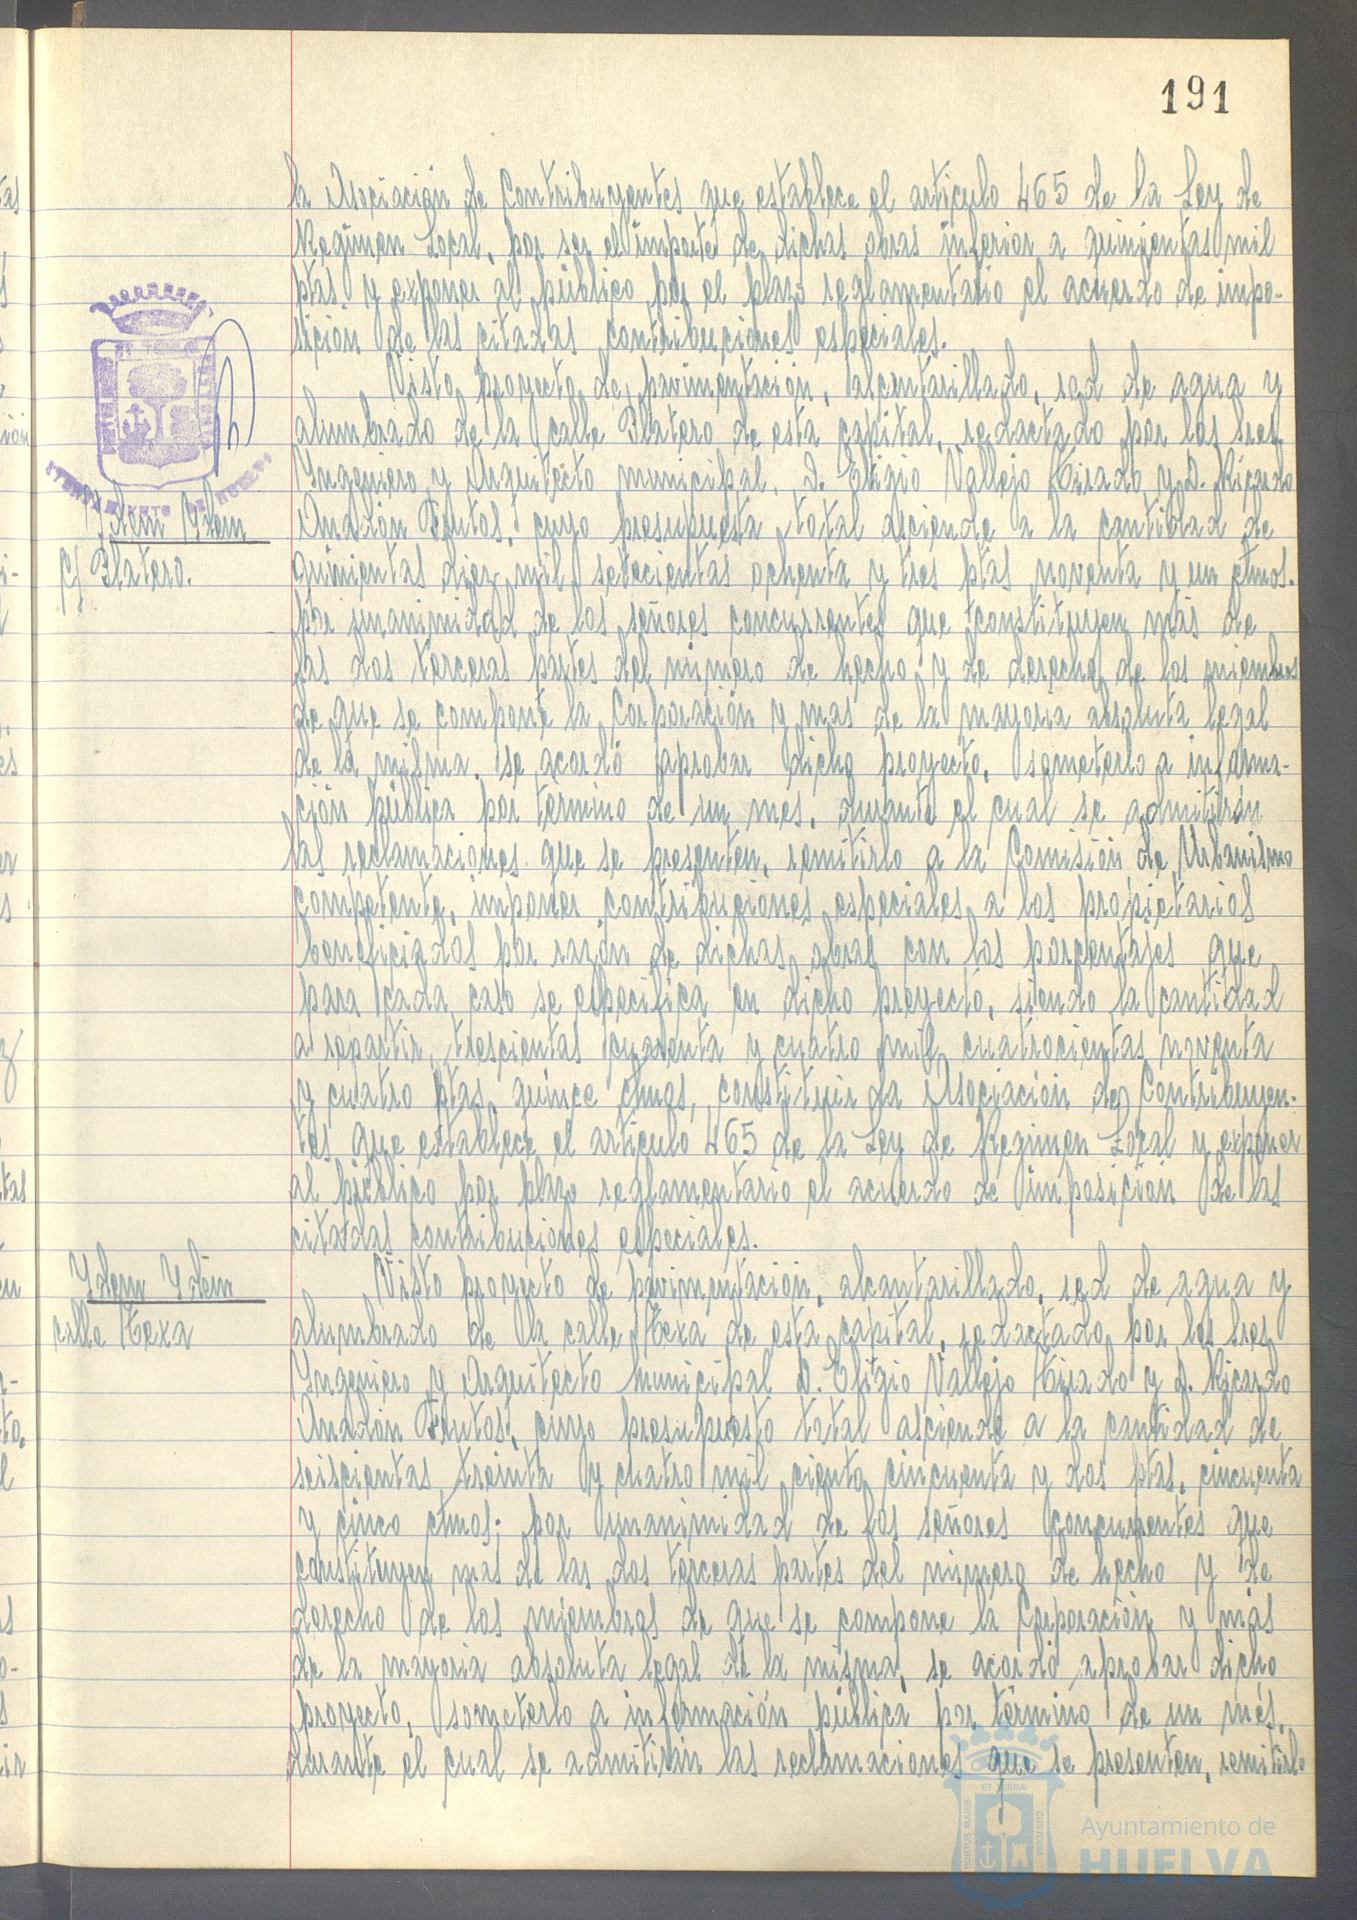 191
la Asociación de Contribuyentes que establece el artículo 465 de la Ley de
Regimen Local, por ser el importe de dichas obras inferior a quinientas mil
ptas y exponer al público por el plazo reglamentario el acuerdo de impo-
sición de las citadas contribuciones especiales.
Idem Idem
c/ Platero.
Visto proyecto de pavimentación, alcantarillado, red de agua y
alumbrado de la calle Platero de esta capital, redactado por los Sres
Yngeniero y Arquitecto municipal, D. Eligio Vallejo Tirado, y D. Ricardo
Anadón Frutos, cuyo presupuesto total asciende a la cantidad de
quinientas diez mil setecientas ochenta y tres ptas noventa y un ctmos.
por unanimidad de los señores concurrentes que constituyen más de
las dos terceras partes del número de hecho y de derecho de los miembros
de que se compone la Corporación y mas de la mayoría absoluta legal
de la misma, se acordó aprobar dicho proyecto, someterlo a informa-
ción pública por término de un mes, durante el cual se admitirán
las reclamaciones que se presenten, remitirlo a la Comisión de Urbanismo
competente, imponer contribuciones especiales a los propietarios
beneficiados por razón de dichas obras con los porcentajes que
para cada caso se especifica en dicho proyecto, siendo la cantidad
a repartir, trescientas cuarenta y cuatro mil cuatrocientas noventa
y cuatro ptas, quince ctmos, constituir la Asociación de Contribuyen-
tes que establece el artículo 465 de la Ley de Regimen Local y exponer
al público por plazo reglamentario el acuerdo de imposición de las
citadas contribuciones especiales.
Ydem Ydem
calle
Visto proyecto de pavimentación, alcantarillado, red de agua y
alumbrado de la calle de esta capital, redactado por los Sres
Yngeniero y Arquitecto Municipal D. Eligio Vallejo Tirado y D. Ricardo
Anadón Frutos, cuyo presupuesto total asciende a la cantidad de
seiscientas treinta y cuatro mil ciento cincuenta y dos ptas, cincuenta
y cinco ctmos; por unanimidad de los señores concurrentes que
constituyen mas de las dos terceras partes del número de hecho y de
derecho de los miembros de que se compone la Corporación y más
de la mayoria absoluta legal de la misma, se acordó aprobar dicho
proyecto, someterlo a información pública por término de un mes,
durante el cual se admitirán las reclamaciones que se presenten, remitirlo
Ayuntamiento de
HUELVA